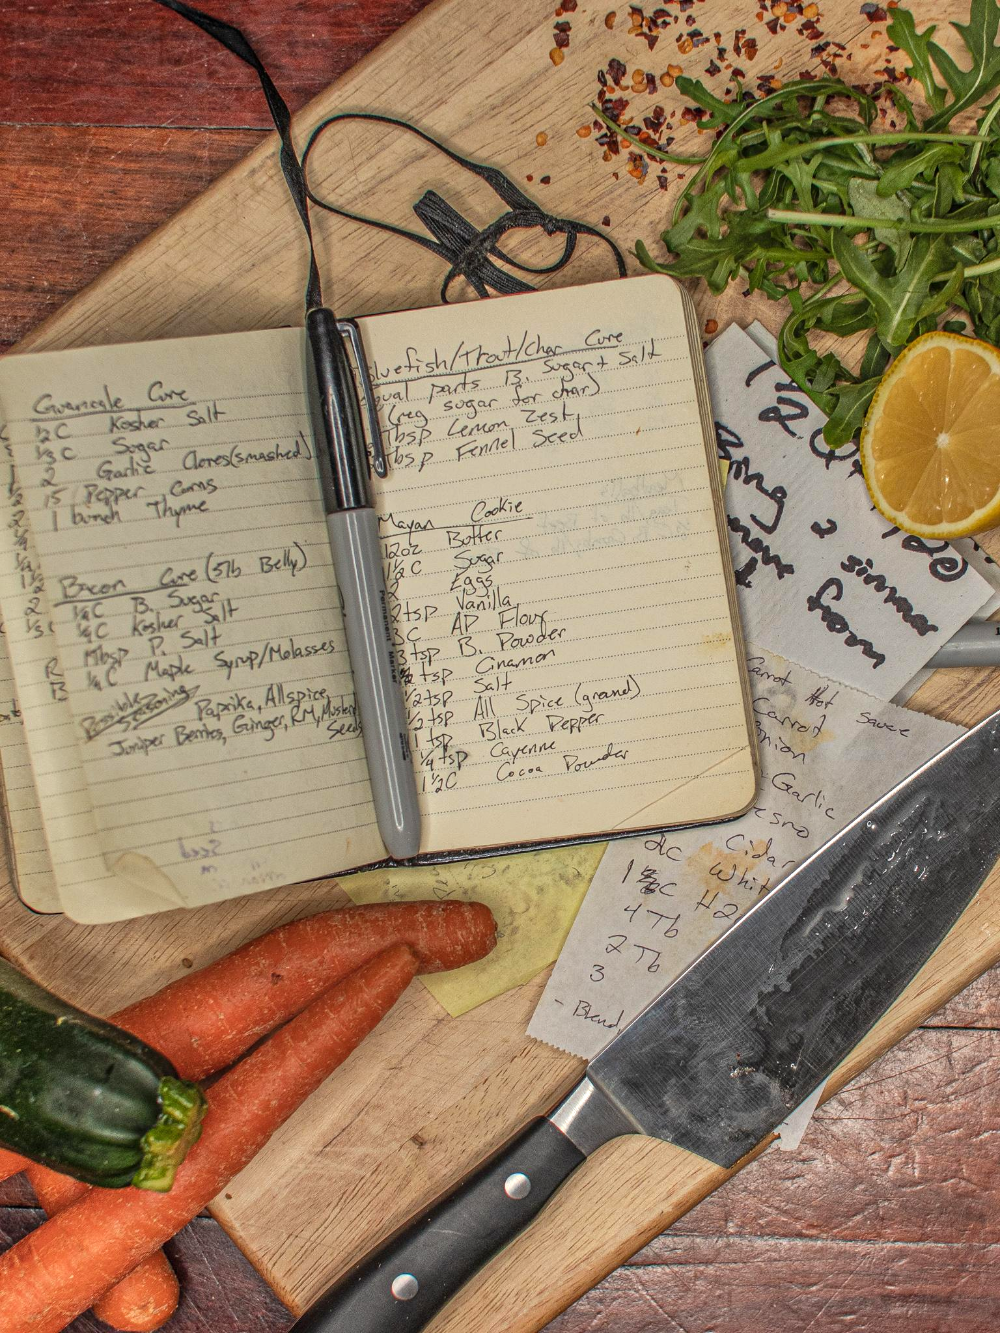 Guancale Cure
½ C Kosher Salt
⅓ C Sugar
2 Garlic Cloves (smashed)
15 Pepper Corns
1 bunch Thyme
Bacon Cure (5lb Belly)
¼C B. Sugar
¼C Kosher Salt
P. Salt
¼C Maple Syrup/Molasses
Possible Seasoning
Paprika, Allspice,
Juniper Berries, Ginger, RM, Mustard
Seeds
luefish/Trout/Char Cure
qual parts B. Sugar + Salt
(reg sugar for char)
Tbsp Lemon Zest
Tbsp Fennel Seed
Mayan Cookie
12oz Butter
1½C Sugar
2 Eggs
2tsp Vanilla
3C AP Flour
3tsp B. Powder
tsp Cinamon
½tsp Salt
½tsp All Spice (ground)
1 tsp Black Pepper
¼tsp Cayenne
1½C Cocoa Powder
Permanent Marker
Bring 2 simmer
from
Carrot Hot Sauce
Carrot
Onion
Garlic
esno
Cidar
Whit
H2
4 Tb
2 Tb
3
- Blend